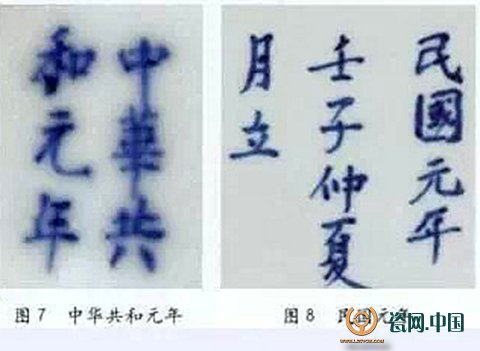 中華共
和元年
民國元年
壬子仲夏
月立
图7 中华共和元年
图8 民国元年
瓷网.中国